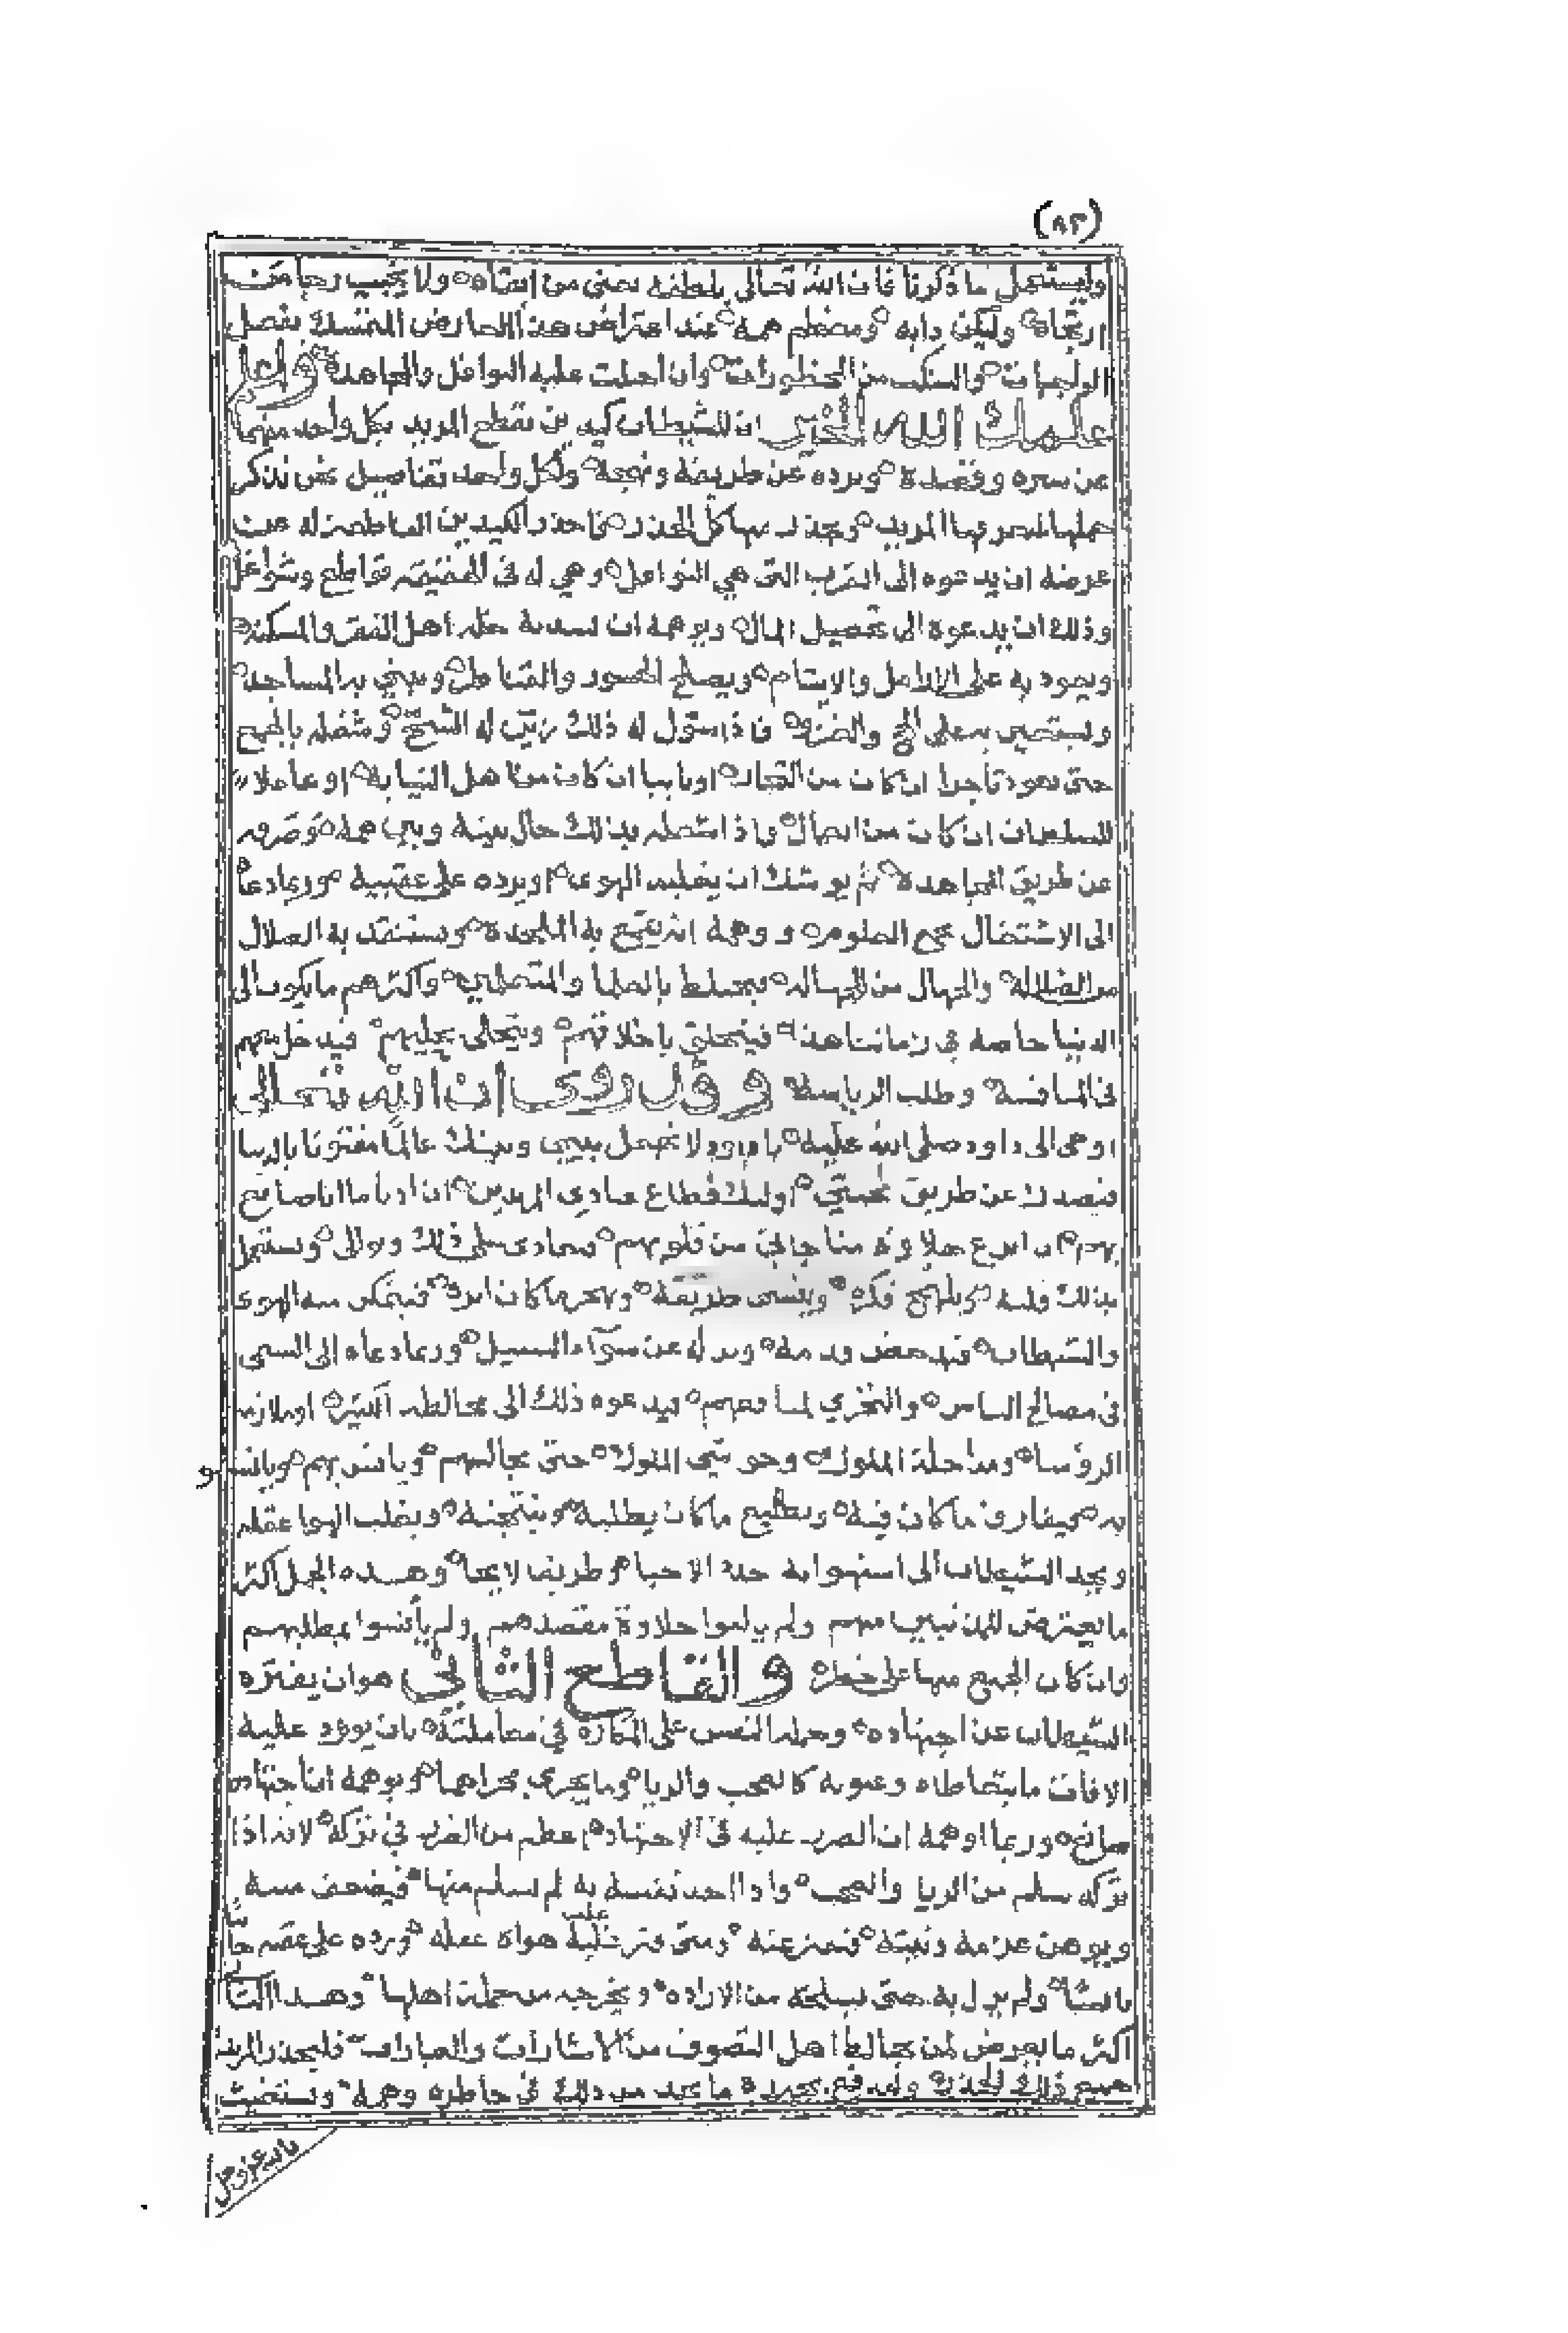 (٩٣)
وليستعمل ما ذكرنا فان الله تعالى بلطفه يعني من اتقاه ولا يخيب رجا من
ارتجاه وليكن دابه ومعظم همه عند اعتراض هذا العارض التمسك بفعل
الواجبات والتنكب من المحظورات وان احلت عليه النوافل والمجاهدا واعلم
علمك الله الخير ان للشيطان كيدين يقطع المريد بكل واحد منهما
عن سيره وقصده ويرده عن طريقه ونهجه ولكل واحد تفاصيل نحن نذكر
جملها ليحترزها المريد ويحذر منها كل الحذر فاحذر الكيدين القاطعين له عن
غرضه ان يدعوه الى القرب التي هي النوافل وهي له في الحقيقه قواطع وشواغل
وذلك ان يدعوه الى تحصيل المال ويوهمه ان يسد به خلة اهل الفقر والمسكنه
ويعود به على الارامل والايتام ويصلح الجسور والقناطر ويبني به المساجد
ويستعين به على الحج والغزو فاذا سول له ذلك زين له الشح وشغله بالجمع
حتى يعود تاجرا ان كان من التجار او نايبا ان كان من اهل النيابة او عاملا
للسلطان ان كان من العمال واذا اشتغل بذلك حال بينه وبين همه وصرفه
عن طريق المجاهده ثم يوشك ان يغلبه الهوى او يرده على عقبيه وربما دعاه
الى الاشتغال بجمع العلوم ووهمه انه يقمع به الملحده ويستنقذ به الضلال
من الضلاله والجهال من الجهاله فيختلط بالعلما والمتعلمين واكثرهم مايلون الى
الدنيا خاصة في زماننا هذا فيتخلق باخلاقهم ويتحلى بحليهم فيدخل معهم
في المنافسه وطلب الرياسه وقد روي ان الله تعالى
اوحى الى داود صلى الله عليه يا داود لا تجعل بيني وبينك عالما مفتونا بالدنيا
فيصدك عن طريق محبتي اوليك قطاع عبادي المريدين ان ادنا ما انا صانع
بهم ان انزع حلاوة مناجاتي من قلوبهم فيتمادى على ذلك ويوالى ويستغل
بذلك قلبه ويلهج فكره وينسى طريقه ويهجر ما كان اثره فيتمكن منه الهوى
والشيطان فيدحض قدمه ويزله عن سوآء السبيل وربما دعاه الى السعي
في مصالح الناس والتحري لمنافعهم فيدعوه ذلك الى مخالطه اكثر او ملازمه
الروسا ومداخلة الملوك وحواشي الملوك حتى يجالسهم ويانس بهم ويانسو
به ويفارق ما كان فيه ويضيع ما كان يطلبه وينتجعه ويغلب الهوا عقله
ويجد الشيطان الى استهوايه حدا لا حيا وطريقا لايحا وهذه الجمل اكثر
ما يعترض للمذنبين منهم ولم يبلغوا حلاوة مقصدهم ولم يأنسوا بمطلبهم
وان كان الجميع منها على خطر والقاطع الثاني هو ان يفتره
الشيطان عن اجتهاده وحمله النفس على المكاره في معاملته بان يورد عليه
الافات ما يتعاطاه وعيوبه كالعجب والريا وما يجري مجراهما ويوهمه ان اجتهاده
ضايع وربما اوهمه ان الضرر عليه في الاجتهاد اعظم من الضرر في تركه لانه اذا
تركه سلم من الريا والعجب واذا اجهد نفسه به لم يسلم منها فيضعف منته
ويوهن عزمه ونيته فيفتر عنه ومتى فتر غلب عليه هواه عمله ورده على عقبه خائبا
بائسا ولم يزل به حتى يسلخه من الاراده ويخرجه من جملة اهلها وهذا الثاني
اكثر ما يعرض لمن يخالط اهل التصوف من الاشارات والعبارات فليحذر المريد
جميع ذلك الحذر وليدفع بجهده ما يجد من ذلك في خاطره وهمه وليستعن
بالله عز وجل